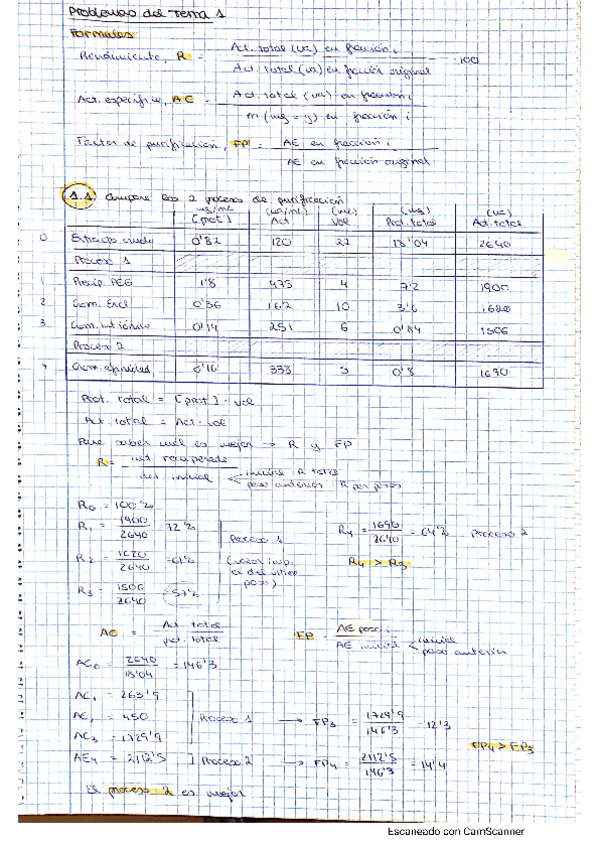 Problemas del Tema 1
Formulas
Rendimiento, R = Act. total (ua) en fracción i / Act. total (ua) en fracción original · 100
Act. específica, AE = Act. total (ua) en fracción i / m (mg o g) en fracción i
Factor de purificación, FP = AE en fracción i / AE en fracción original
1.1 Compare los 2 procesos de purificación
mg/mL [prot] (ua/mL) Act (mL) Vol (mg) Prot. total (ua) Act. total
0 Extracto crudo 0'82 120 22 18'04 2640
Proceso 1
1 Precip PEG 1'8 475 4 7'2 1900
2 Crom. Excl 0'36 162 10 3'6 1620
3 Crom. int iónico 0'14 251 6 0'84 1506
Proceso 2
4 Crom. afinidad 0'16 338 5 0'8 1690
Prot. total = [prot] · vol
Act. total = Act · vol
Para saber cuál es mejor → R y FP
R = act recuperada / act inicial
inicial: R total
paso anterior: R por pasos
R0 = 100%
R1 = 1900 / 2640 = 72%
R2 = 1620 / 2640 = 61%
R3 = 1506 / 2640 = 57%
Proceso 1
(valor imp. es del último paso)
R4 = 1690 / 2640 = 64% Proceso 2
R4 > R3
AE = Act total / prot. total
FP = AE paso i / AE inicial
inicial
paso anterior
AE0 = 2640 / 18'04 = 146'3
AE1 = 263'9
AE2 = 450
AE3 = 1792'9
Proceso 1 → FP3 = 1792'9 / 146'3 = 12'3
FP4 > FP3
AE4 = 2112'5 Proceso 2 → FP4 = 2112'5 / 146'3 = 14'4
El proceso 2 es mejor
Escaneado con CamScanner